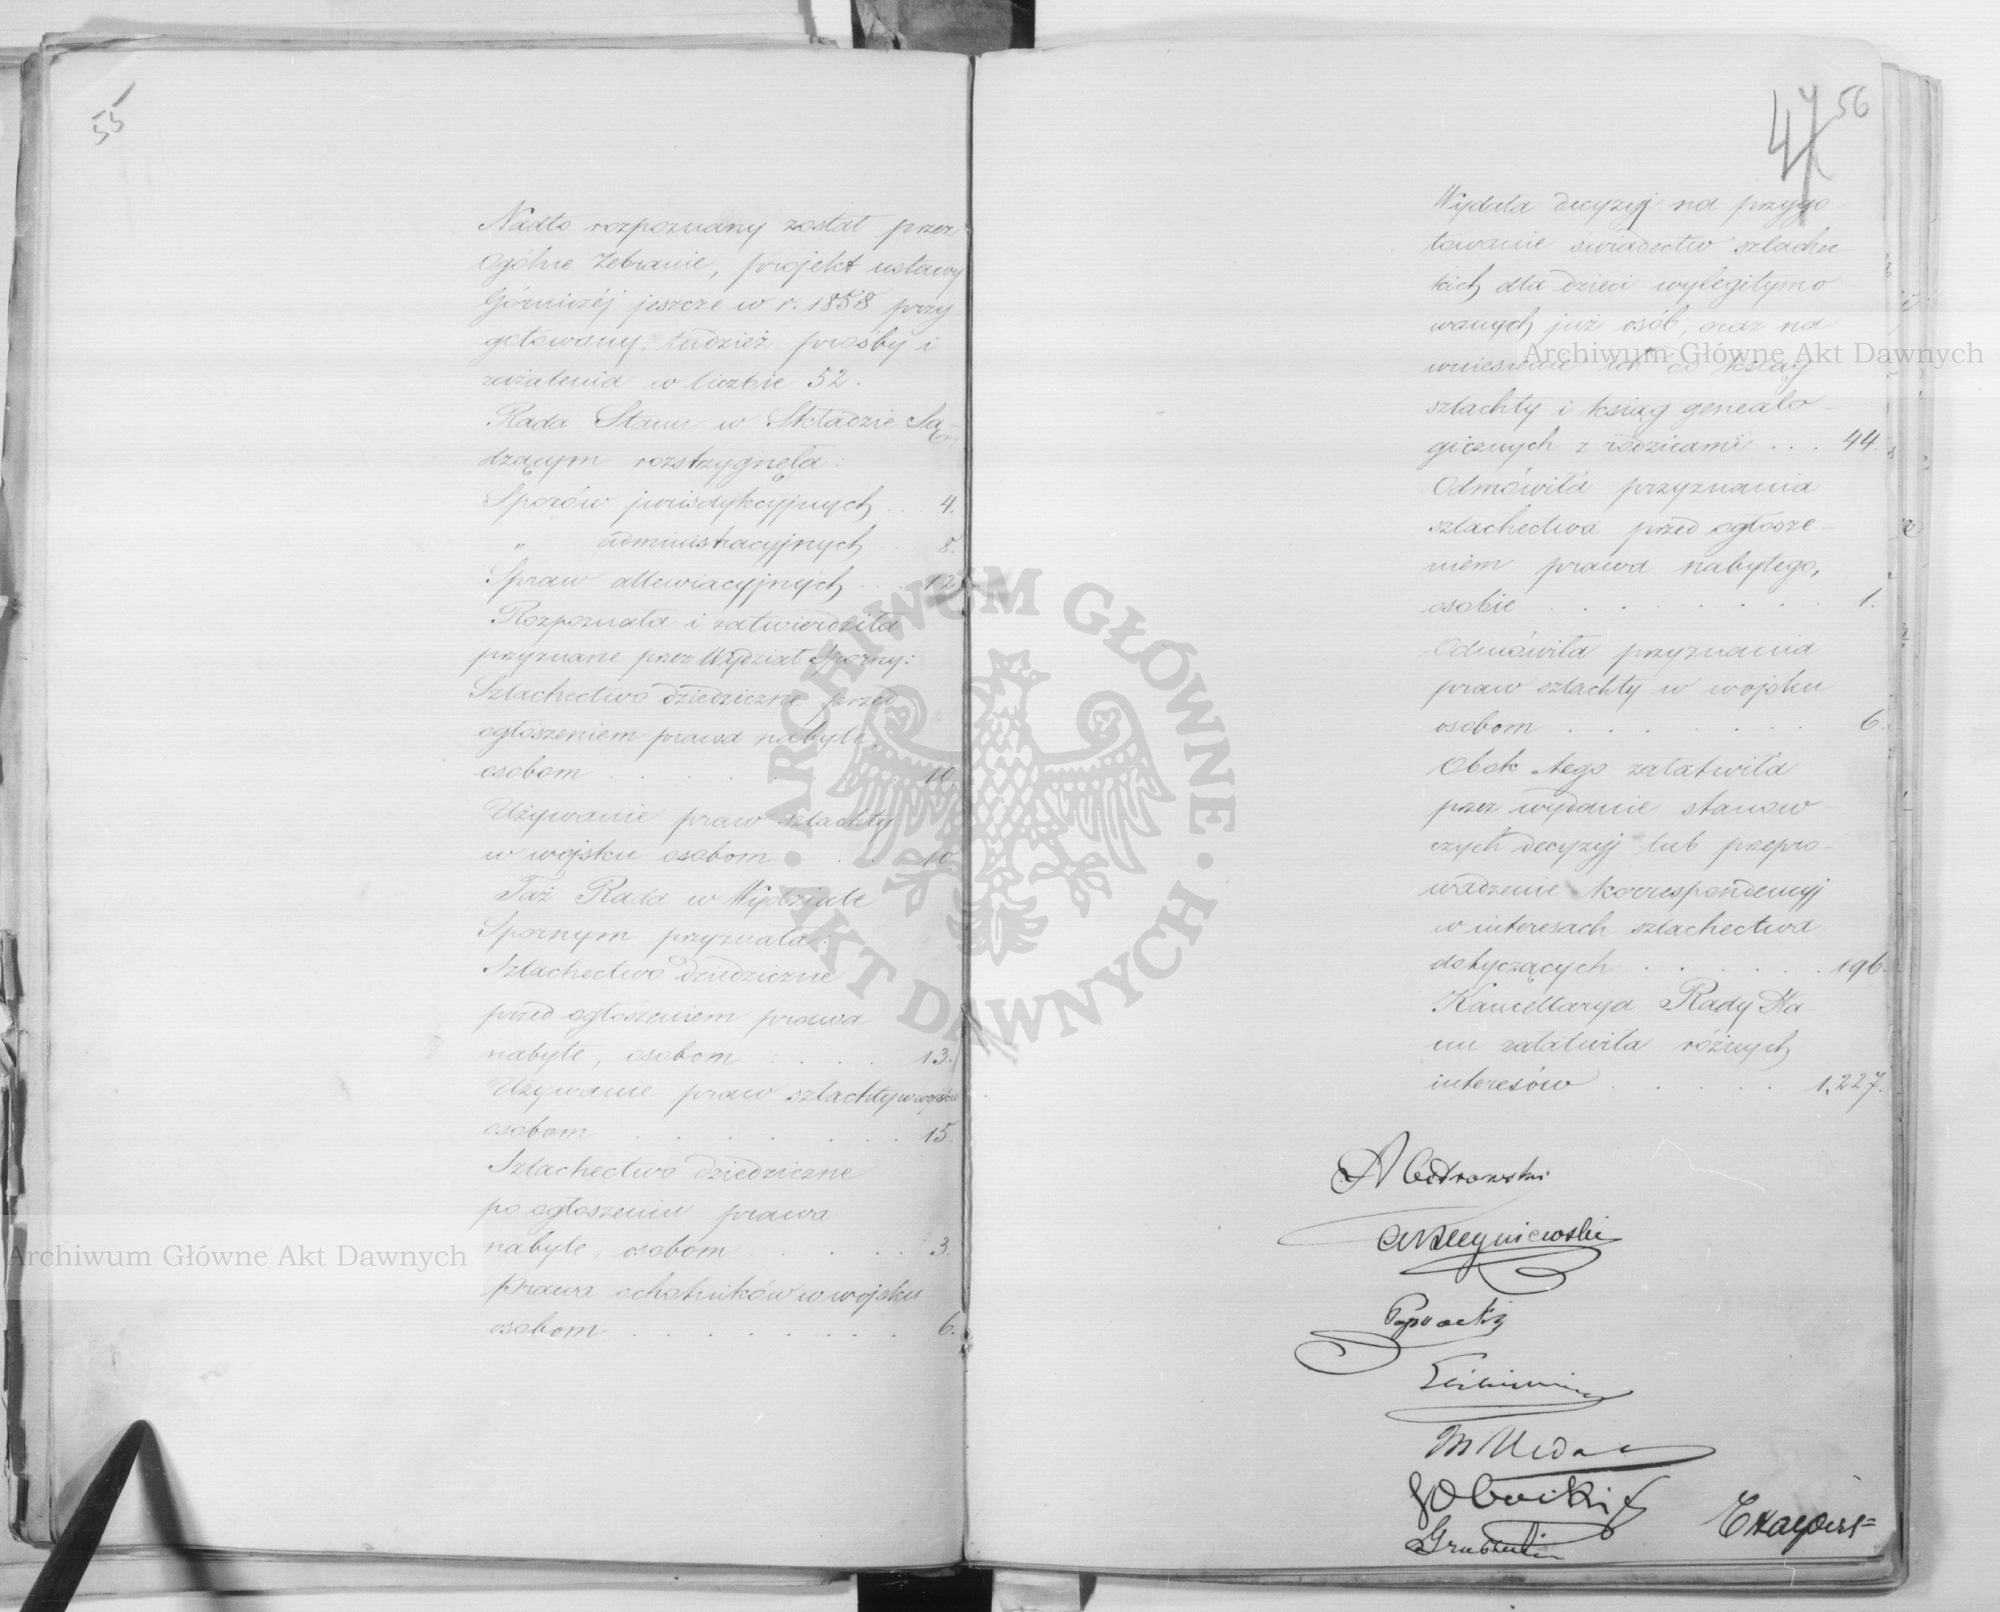 55
Nadto rozpoznany został przez
Ogólne Zebranie, projekt ustawy
Górniczéj jeszcze w r. 1858 przy
gotowany, tudzież prośby i
zażalenia w liczbie 52.
Rada Stanu w Składzie Są-
dzącym rozstrzygnęła:
Sporów jurisdykcyjnych . . . 4.
" administracyjnych . . 8.
Spraw allewiacyjnych . . . 12
Rozpoznała i zatwierdziła
przyznane przez Wydział Sporny:
Szlachectwo dziedziczne przed
ogłoszeniem prawa nabyte,
osobom . . . . . 10
Używanie praw szlachty
w wojsku osobom . . . 10.
Taż Rada w Wydziale
Spornym przyznała:
Szlachectwo dziedziczne
przed ogłoszeniem prawa
nabyte, osobom . . . . 13.
Używanie praw szlachty w wojsku
osobom . . . . . . 15.
Szlachectwo dziedziczne
po ogłoszeniu prawa
nabyte, osobom . . . . 3.
prawa ochotników w wojsku
osobom . . . . . . . . 6.
47 56
Wydała decyzyj na przygo-
towanie świadectw szlachec-
kich dla dzieci wylegitymo
wanych już osób, oraz na
wniesienie ich do ksiąg
szlachty i ksiąg genealo-
gicznych z rodzicami . . . 44.
Odmówiła przyznania
szlachectwa przed ogłosze-
niem prawa nabytego,
osobie . . . . . . . . 1.
Odmówiła przyznania
praw szlachty w wojsku
osobom . . . . . . . 6.
Obok tego załatwiła
przez wydanie stanow-
czych decyzyj lub przepro-
wadzenie korrespondencyj
w interesach szlachectwa
dotyczących . . . . . . 196.
Kancellarya Rady Sta-
nu załatwiła różnych
interesów . . . . . 1,227.
A Ostrowski
Paprocki
Archiwum Główne Akt Dawnych
Archiwum Główne Akt Dawnych
ARCHIWUM GŁÓWNE
AKT DAWNYCH